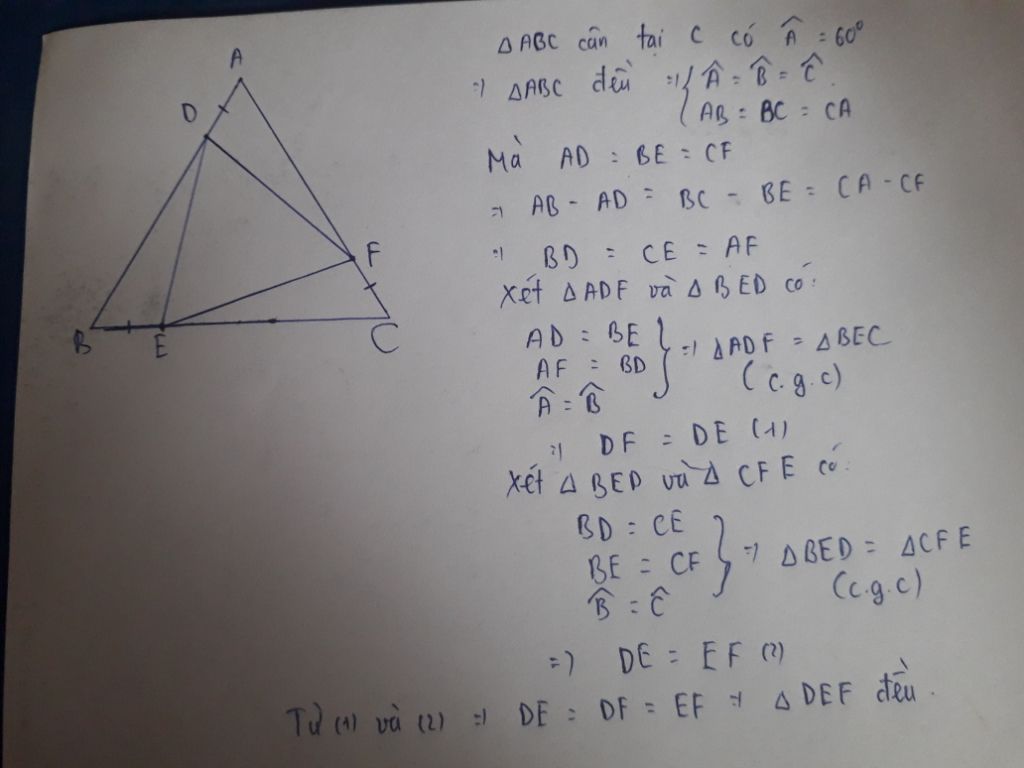 A
D
F
B
E
C
ΔABC cân tại C có Â = 60°
=> ΔABC đều => { Â = B̂ = Ĉ.
AB = BC = CA
Mà AD = BE = CF
=> AB - AD = BC - BE = CA - CF
=> BD = CE = AF
Xét ΔADF và ΔBED có:
AD = BE
AF = BD } => ΔADF = ΔBEC
Â = B̂ (c.g.c)
=> DF = DE (1)
Xét ΔBED và ΔCFE có:
BD = CE
BE = CF } => ΔBED = ΔCFE
B̂ = Ĉ (c.g.c)
=> DE = EF (2)
Từ (1) và (2) => DE = DF = EF => ΔDEF đều.